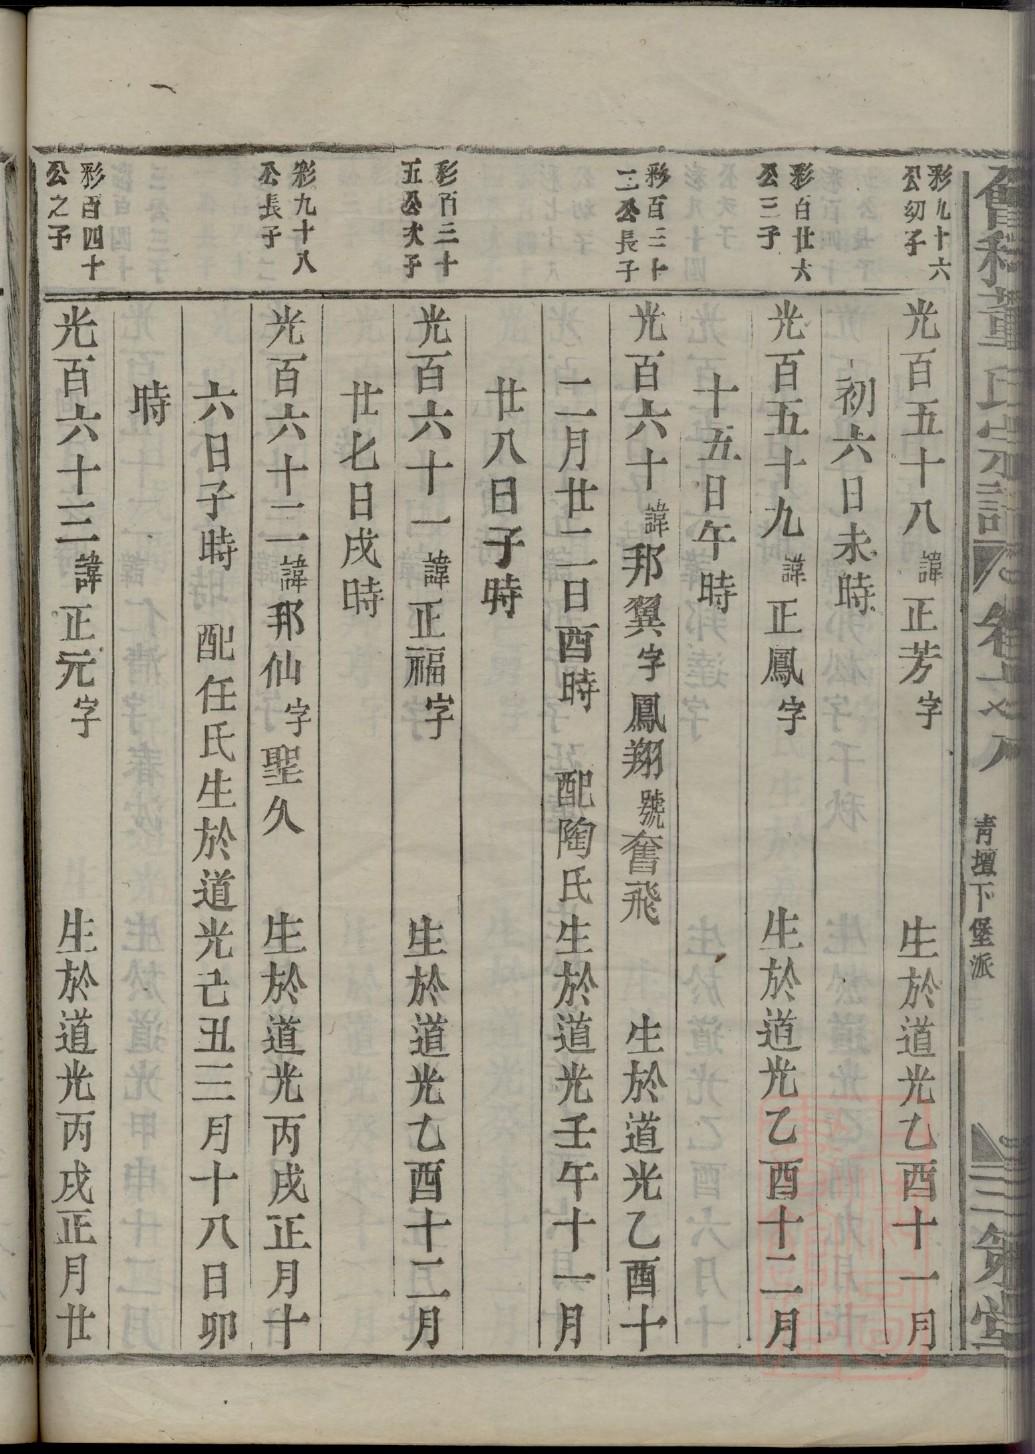 董氏宗譜
青壇下堡派
三策堂
彩九十六
公幼子
光百五十八諱正芳字 生於道光乙酉十一月
初六日未時
彩百廿六
公三子
光百五十九諱正鳳字 生於道光乙酉十二月
十五日午時
彩百三十
二公長子
光百六十諱邦翼字鳳翔號奮飛 生於道光乙酉十
二月廿二日酉時 配陶氏生於道光壬午十一月
廿八日子時
彩百三十
五公次子
光百六十一諱正福字 生於道光乙酉十二月
廿七日戌時
彩九十八
公長子
光百六十二諱邦仙字聖久 生於道光丙戌正月十
六日子時 配任氏生於道光己丑三月十八日卯
時
彩百四十
公之子
光百六十三諱正元字 生於道光丙戌正月廿